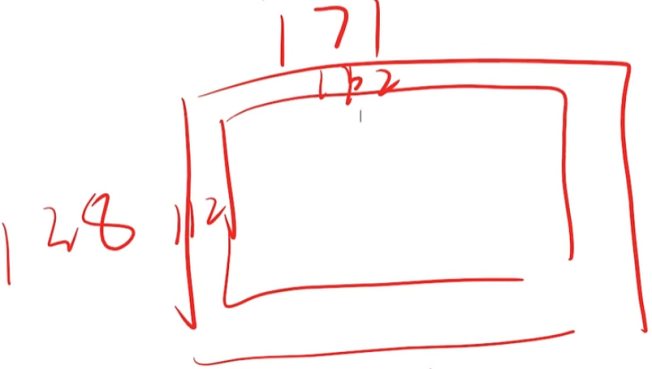 171
112
128 112